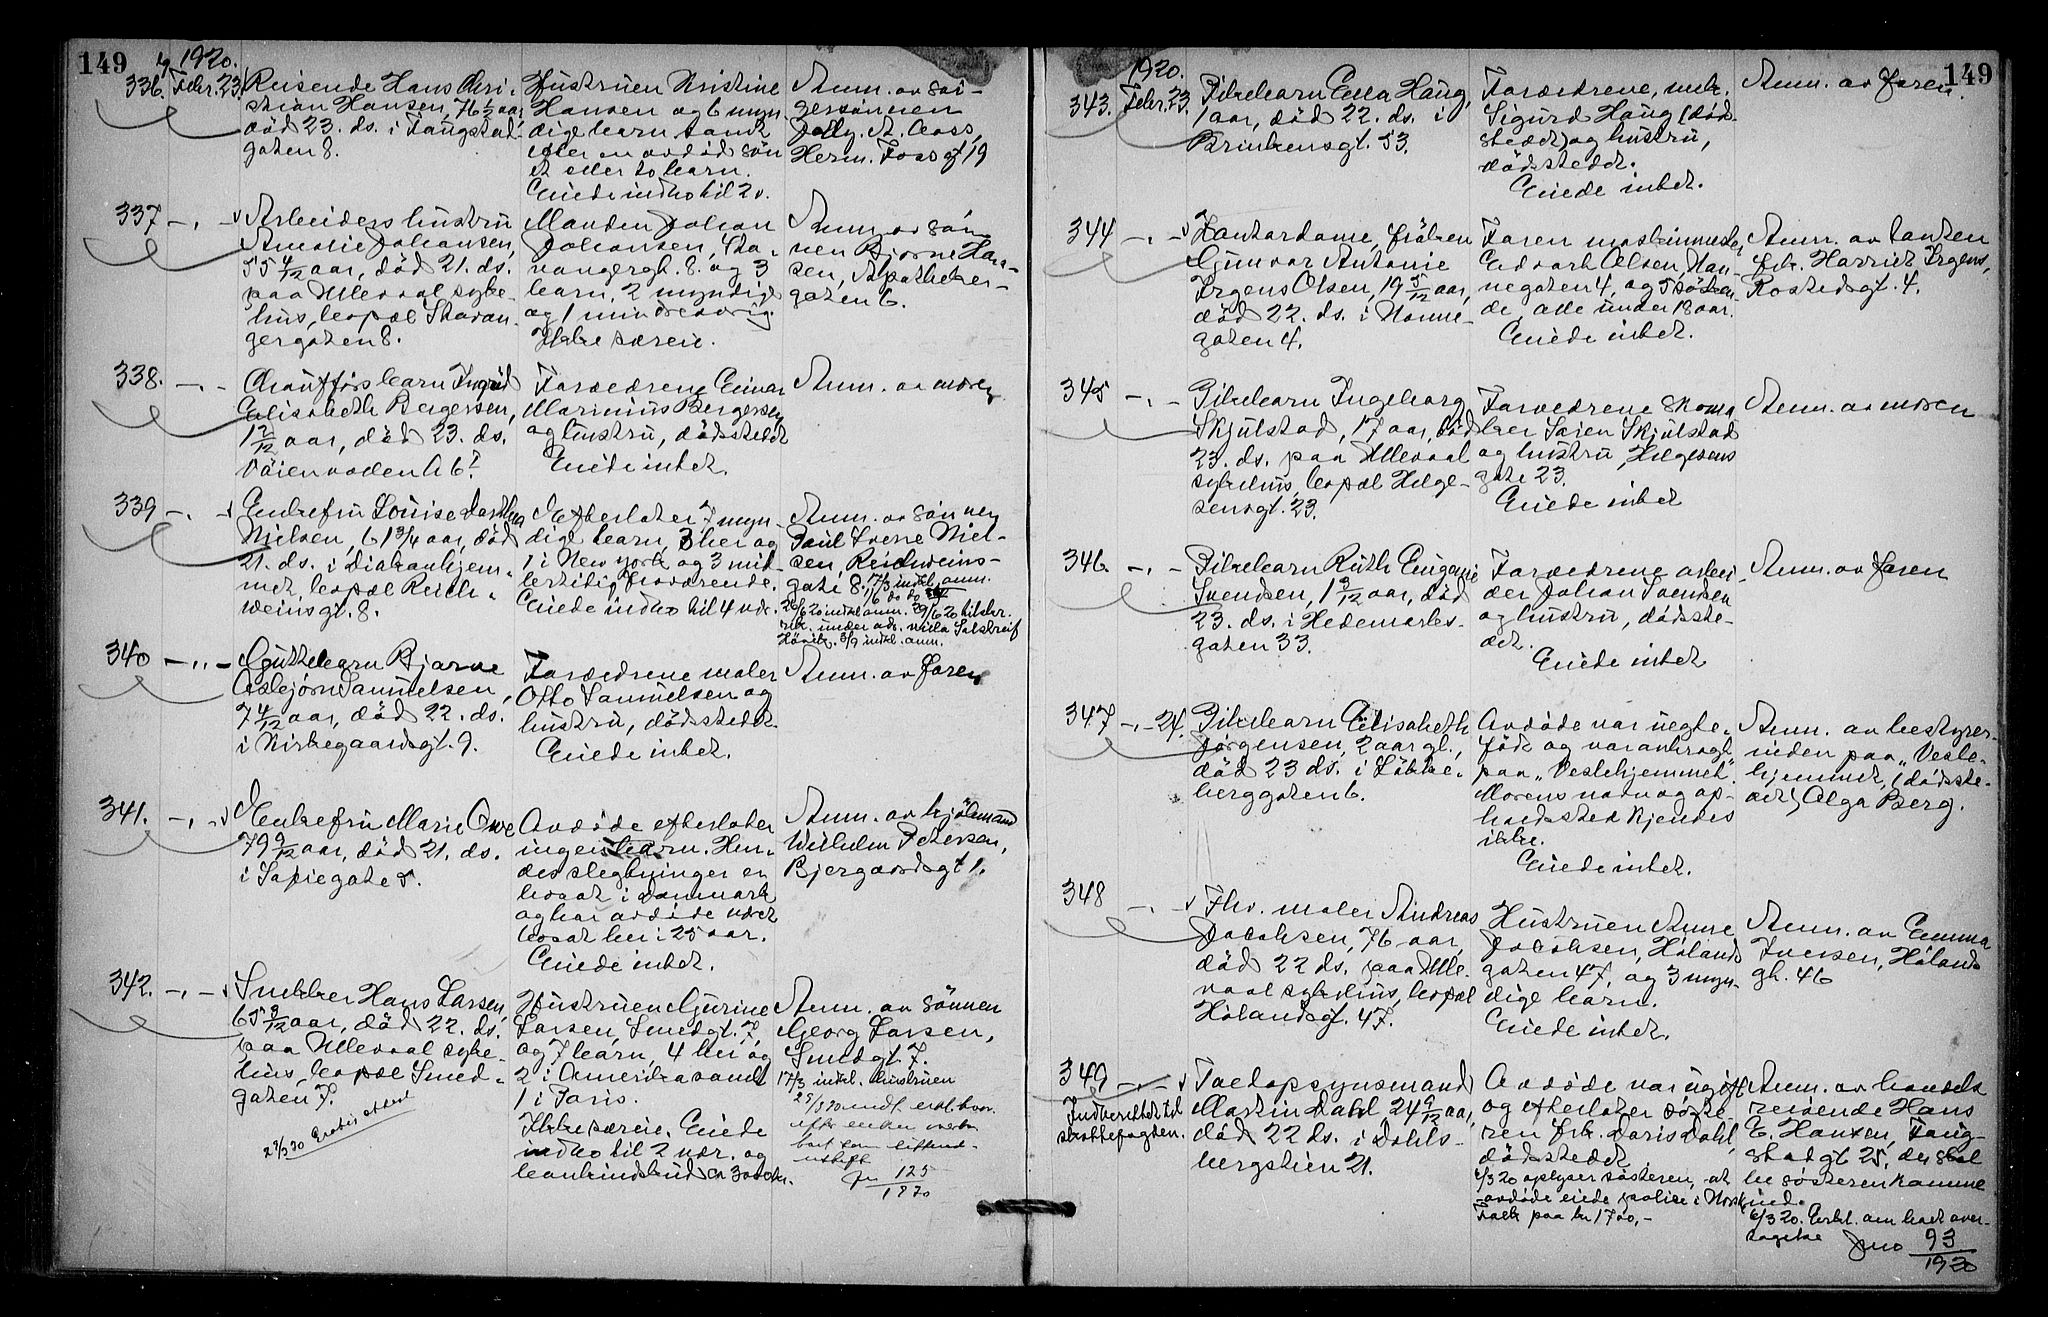 149
1920.
336. Febr. 23. Reisende Hans Chri-
stian Hansen, 76 1/2 aar
død 23. ds. i Faugstad-
gaten 8.
Hustruen Kristine
Hansen og 6 myn-
dige barn samt
efter en avdød søn
et eller to barn.
Eiede indbo til 20.
Anm. av svi-
gersønnen
Herm. Fossgt 19
337 -"- Arbeiders hustru
Amalie Johansen,
55 4/12 aar, død 21. ds.
paa Ullevaal syke-
hus, bopæl Stavan-
gergaten 8.
Manden Johan
Johansen, Sta-
vangergt. 8. og 3
barn, 2 myndige
og 1 mindreaarig.
Ikke særeie.
Anm. av søn-
nen Bjarne Han-
sen, Apotheker-
gaten 6.
338. -"- Chaufførs barn Ingrid
Elisabeth Bergersen,
1 2/12 aar, død 23. ds.
Forældrene Einar
Marinius Bergersen
og hustru, dødsstedet
Eiede intet.
Anm. av moren
339 -"- Enkefru Louise
Nielsen, 61 3/4 aar, død
21. ds. i Diakonhjem-
met, bopæl Reich-
weinsgt. 8.
Efterlater 7 myn-
dige barn, 3 her og
1 i New York og 3 mid-
lertidig fraværende.
Eiede indbo til 4 vær.
Anm. av sønnen
Paul Niel-
sen, Reichweins-
gate 8. 17/3 indk. anm.
3/9 indk. anm.
340 -"- Guttebarn Bjarne
Asbjørn Samuelsen,
7 4/12 aar, død 22. ds.
i Kirkegaardsgt. 9.
Forældrene maler
Otto Samuelsen og
hustru, dødsstedet.
Eiede intet.
Anm. av faren
341. -"- Enkefru Marie Owe
79 9/12 aar, død 21. ds.
i Sofiegate 5.
Avdøde efterlater
ingen barn. Hen-
des slegtninger er
bosat i Danmark
og har avdøde været
bosat her i 25 aar.
Eiede intet.
Anm. av kjøbmand
Wilhelm Petersen,
Bjergaardsgt 1.
342. -"- Snekker Hans Larsen,
65 9/12 aar, død 22. ds.
paa Ullevaal syke-
hus, bopæl Smed-
gaten 7.
Hustruen Gurine
Larsen, Smedgt. 7,
og 7 barn, 4 her og
2 i Amerika samt
1 i Paris.
Ikke særeie. Eiede
indbo til 2 vær. og
Anm. av sønnen
Georg Larsen,
Smedgt 7.
17/3 indk. hustruen
125
1920
149
1920.
343. Febr. 23. Pikebarn Edna Haug,
1 aar, død 22. ds. i
Brinkensgt. 53.
Forældrene, mek.
Sigurd Haug (død-
stedet) og hustru,
dødsstedet.
Eiede intet.
Anm. av faren.
344 -"- Kontordame, frøken
Gunvor Antonie
Irgens Olsen, 19 5/12 aar,
død 22. ds. i Nonne-
gaten 4.
Faren maskinmester
Edvard Olsen, Non-
negaten 4, og 5 søsken-
de, alle under 18 aar.
Eiede intet.
Anm. av tanten
frk. Harriet Irgens,
Rostedsgt. 4.
345 -"- Pikebarn Ingeborg
Skjulstad, 17 aar, død
23. ds. paa Ullevaal
sykehus, bopæl Helge-
sensgt. 23.
Forældrene skoma
ker Søren Skjulstad
og hustru, Helgesens
gate 23.
Eiede intet
Anm. av moren
346 -"- Pikebarn Ruth Eugenie
Svendsen, 1 9/12 aar, død
23. ds. i Hedemarks-
gaten 33.
Forældrene arbei-
der Johan Svendsen
og hustru, dødsste-
det.
Eiede intet
Anm. av faren
347 -"- 24. Pikebarn Elisabeth
Jørgensen, 2 aar gl.,
død 23 ds. i Løkke-
berggaten 6.
Avdøde var uegte-
født og var anbragt
paa "Veslehjemmet".
Morens navn og op-
holdssted kjendes
ikke.
Eiede intet.
Anm. av bestyrer-
inden paa "Vesle-
hjemmet, (dødsste-
det) Olga Berg.
348 -"- Fhv. maler Andreas
Jacobsen, 76 aar,
død 22 ds. paa Ulle-
vaal sykehus, bopæl
Hølandsgt. 47.
Hustruen Anne
Jacobsen, Hølands
gaten 47, og 3 myn-
dige barn.
Eiede intet.
Anm. av Emma
Iversen, Hølands
gt. 46
349 -"- Toldopsynsmand
Martin Dahl 24 9/12 aar,
død 22 ds. i Dahls-
bergstien 21.
Indberettet til
skattefogden.
Avdøde var ugift
og efterlater søste-
ren frk. Doris Dahl,
dødsstedet
6/3 20 oplyser søsteren, at
avdøde eiede polise i Norsk
Folk paa kr 1700,-
Anm. av handels
reisende Hans
E. Hansen, Faug-
stadgt 25, der skal
be søsteren komme
ind.
6/3 20. Erkl. om boets over-
tagelse
Jno 93
1920